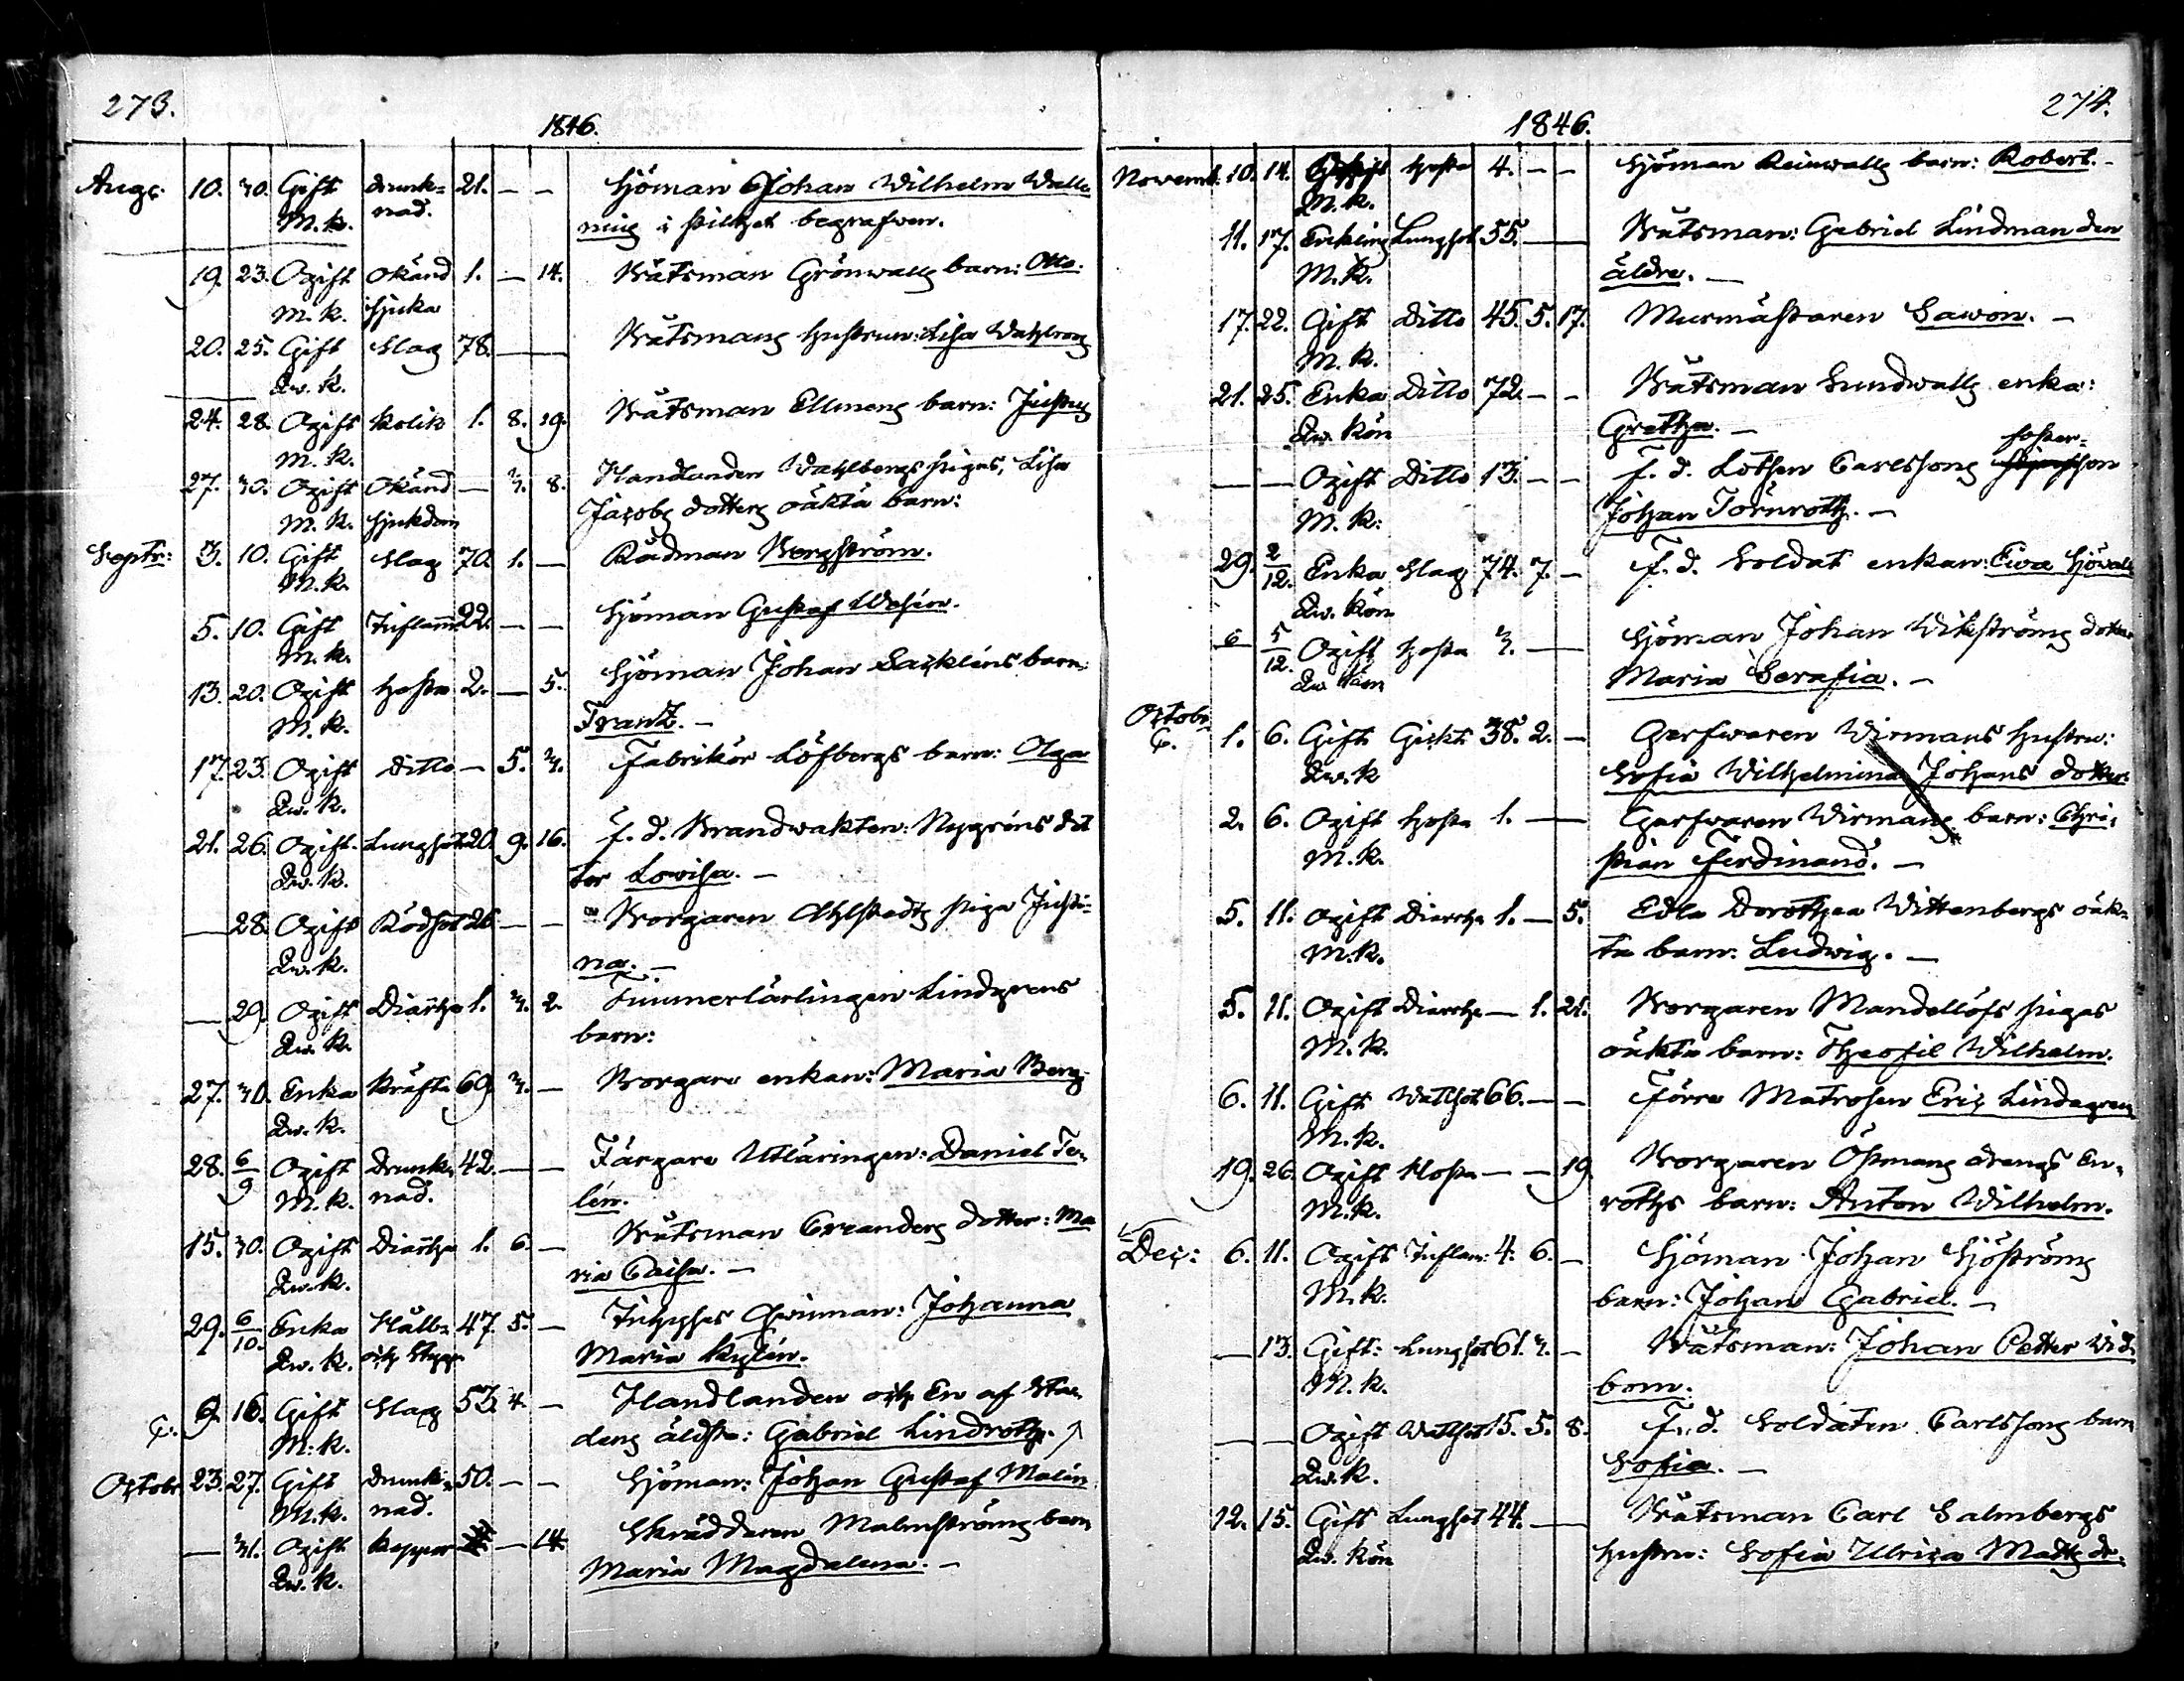 273.
1846.
Aug: 10. 30. Gift Drunk= 21. — — Sjöman Johan Wilhelm Wall=
M. k. nad. ning i stillhet begrafven.
19. 23. Ogift Okänd 1. — 14. Båtsman Grönwalls barn: Otto.
M. k. sjuka
20. 25. Gift Slag 78. — — Båtsmans hustrun: Lisa Wahlberg
Qv. k.
24. 28. Ogift Kolik 1. 8. 19. Båtsman Ellmens barn: Justus
M. k.
27. 30. Ogift Okänd — 3. 8. Handlanden Wahlbergs pigas, Lisa
M. k. sjukdom Jacobs dotters oäkta barn:
Septr: 3. 10. Gift Slag 70. 1. — Rådman Bergström.
M. k.
5. 10. Gift Inflamm. 22. — — Sjöman Gustaf Wasén.
M. k.
13. 20. Ogift hosta 2. — 5. Sjöman Johan Säckléns barn:
M. k. Frantz. —
17. 23. Ogift Ditto — 5. 3. Fabrikör Löfbergs barn: Olga
Qv. k.
21. 26. Ogift Lungsot 20. 9. 16. f. d. Brandvakten: Nygréns dot
Qv. k. ter Lovisa. —
— 28. Ogift Rödsot 26 — — Borgaren Ahlstedts piga Justi=
Qv. k. na. —
— 29. Ogift Diarrhe 1. 3. 2. Timmerlärlingen Lindgrens
Qv. k. barn:
27. 30. Enka Kräfta 69. 3. — Borgare enkan: Maria Berg
Qv. k.
28. 6/9 Ogift Drunk= 42. — — Färgare Utläringen: Daniel Te=
M. k. nad. lén.
15. 30. Ogift Diarrhe 1. 6. — Båtsman Grranders dotter: Ma
Qv. k. ria Caisa. —
29. 6/10. Enka Håll= 47. 5. — Inhyses Qvinnan: Johanna
Qv. k. och Stygn Maria Kylén.
C. 9. 16. Gift Slag 53. 4. — Handlanden och En af Sta=
M. k. dens äldste: Gabriel Lindroth.
Octobr 23. 27. Gift Drunk= 50. — — Sjöman: Johan Gustaf Malén
M. k. nad.
— 31. Ogift Koppor — 14. Skräddaren Malmströms barn
Qv. k. Maria Magdalena. —
274.
1846.
Novemb. 10. 14. hosta 4. — — Sjöman Reinwalls barn: Robert. —
M. k.
11. 17. Enkling Lungsot 55. — Båtsman: Gabriel Lindman den
M. k. äldre. —
17. 22. Gift Ditto 45. 5. 17. Murmästaren Sawon. —
M. k.
21. 25. Enka Ditto 72. — — Båtsman Sundwalls enka:
Qv. kön Gretha. —
foster=
— — Ogift Ditto 13. — — f. d. Lotsen Carlssons son
M. k. Johan Törnroth. —
29. 2/12. Enka Slag 74. 7. — F. d. Soldat enkan: Ewa Sjövall
Qv. kön
6 5/12. Ogift hosta 3. — Sjöman Johan Wikströms dotter
Qv kön Maria Serafia. —
Octobr
C. 1. 6. Gift Gickt 38. 2. — Garfvaren Wirmans hustru:
Qv. k Sofia Wilhelmina Johans dotter.
2. 6. Ogift hosta 1. — Garfvaren Wirmans barn: Chri=
M. k. stian Ferdinand. —
5. 11. Ogift Diarrhe 1. — 5. Edla Dorothea Wittenbergs oäk=
M. k. ta barn: Ludvig. —
5. 11. Ogift Diarrhe — 1. 21. Borgaren Mandellöfs pigas
M. k. oäkta barn: Theofil Wilhelm.
6. 11. Gift Wattsot 66. — — Förre Matrosen Eric Lindegren
M. k.
19. 26. Ogift Hosta — — 19. Borgaren Östmans drengs En=
M. k. roths barn: Anton Wilhelm.
Dec: 6. 11. Ogift Inflam: 4. 6. — Sjöman Johan Sjöströms
M. k. barn: Johan Gabriel. —
— 13. Gift: Lungsot 61. 3. — Båtsman: Johan Petter Wid=
M. k. bom.
— — Ogift Wattsot 15. 5. 8. F. d. Soldaten Carlssons barn
Qv. k. Sofia. —
12. 15. Gift Lungsot 44. — Båtsman Carl Salmbergs
Qv. kön hustru: Sofia Ulrica Matts dr.